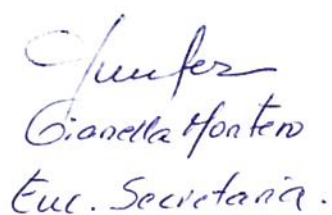 Gianella Montero
Enc. Secretaria.